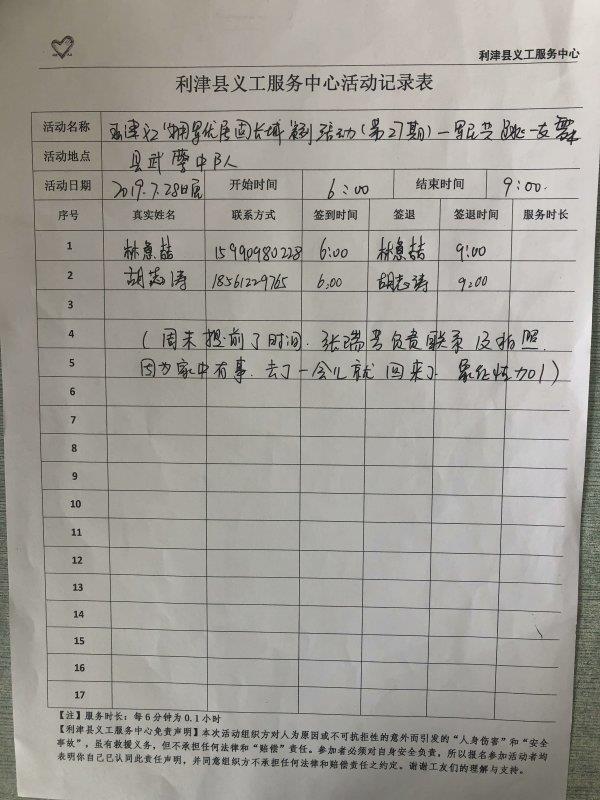 利津县义工服务中心
利津县义工服务中心活动记录表
活动名称 "拥军优属固长城"系列活动(第27期)一军民共跳一支舞
活动地点 县武警中队
活动日期 2019.7.28日晨 开始时间 6:00 结束时间 9:00.
序号 真实姓名 联系方式 签到时间 签退 签退时间 服务时长
1 林意喆 15990980228 6:00 林意喆 9:00
2 胡志涛 18561229765 6:00 胡志涛 9:00
3
4 (周末提前了时间.张瑞芳负责联系及拍照.
5 因为家中有事.去了一会儿就回来了.
6
7
8
9
10
11
12
13
14
15
16
17
【注】服务时长:每6分钟为0.1小时
【利津县义工服务中心免责声明】本次活动组织方对人为原因或不可抗拒性的意外而引发的"人身伤害"和"安全
事故",虽有救援义务,但不承担任何法律和"赔偿"责任。参加者必须对自身安全负责,所以报名参加活动者均
表明你自己已认同此责任声明,并同意组织方不承担任何法律和赔偿责任之约定。谢谢工友们的理解与支持。